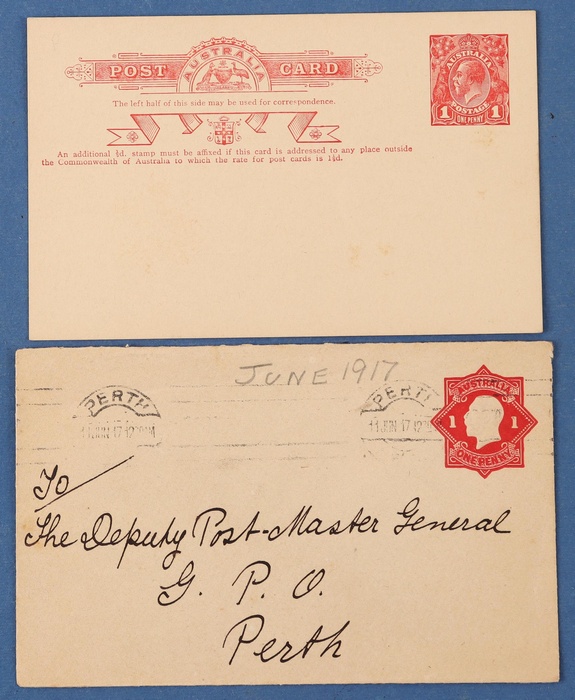 AUSTRALIA
POST CARD
The left half of this side may be used for correspondence.
An additional ½d. stamp must be affixed if this card is addressed to any place outside
the Commonwealth of Australia to which the rate for post cards is 1½d.
AUSTRALIA
POSTAGE
1 1
ONE PENNY
JUNE 1917
PERTH PERTH
11 JUN 17 12 PM 11 JUN 17 12
AUSTRALIA
1 1
ONE PENNY
To
The Deputy Post-Master General
G. P. O.
Perth